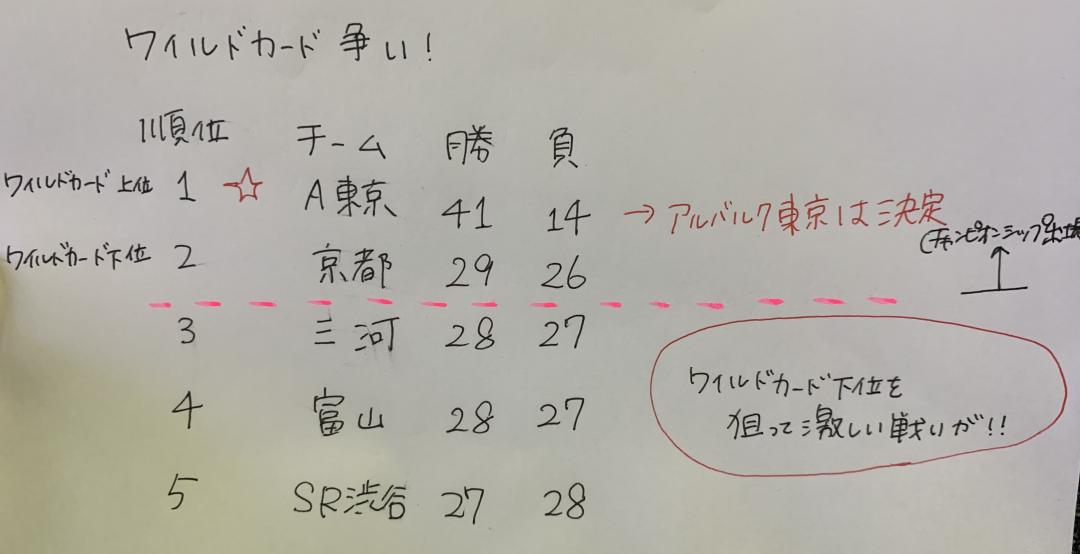 ワイルドカード争い!
順位 チーム 勝 負
ワイルドカード上位 1 ☆ A東京 41 14 → アルバルク東京は決定
ワイルドカード下位 2 京都 29 26
(チャンピオンシップ出場
3 三河 28 27
4 富山 28 27
ワイルドカード下位を
狙って激しい戦いが!!
5 SR渋谷 27 28